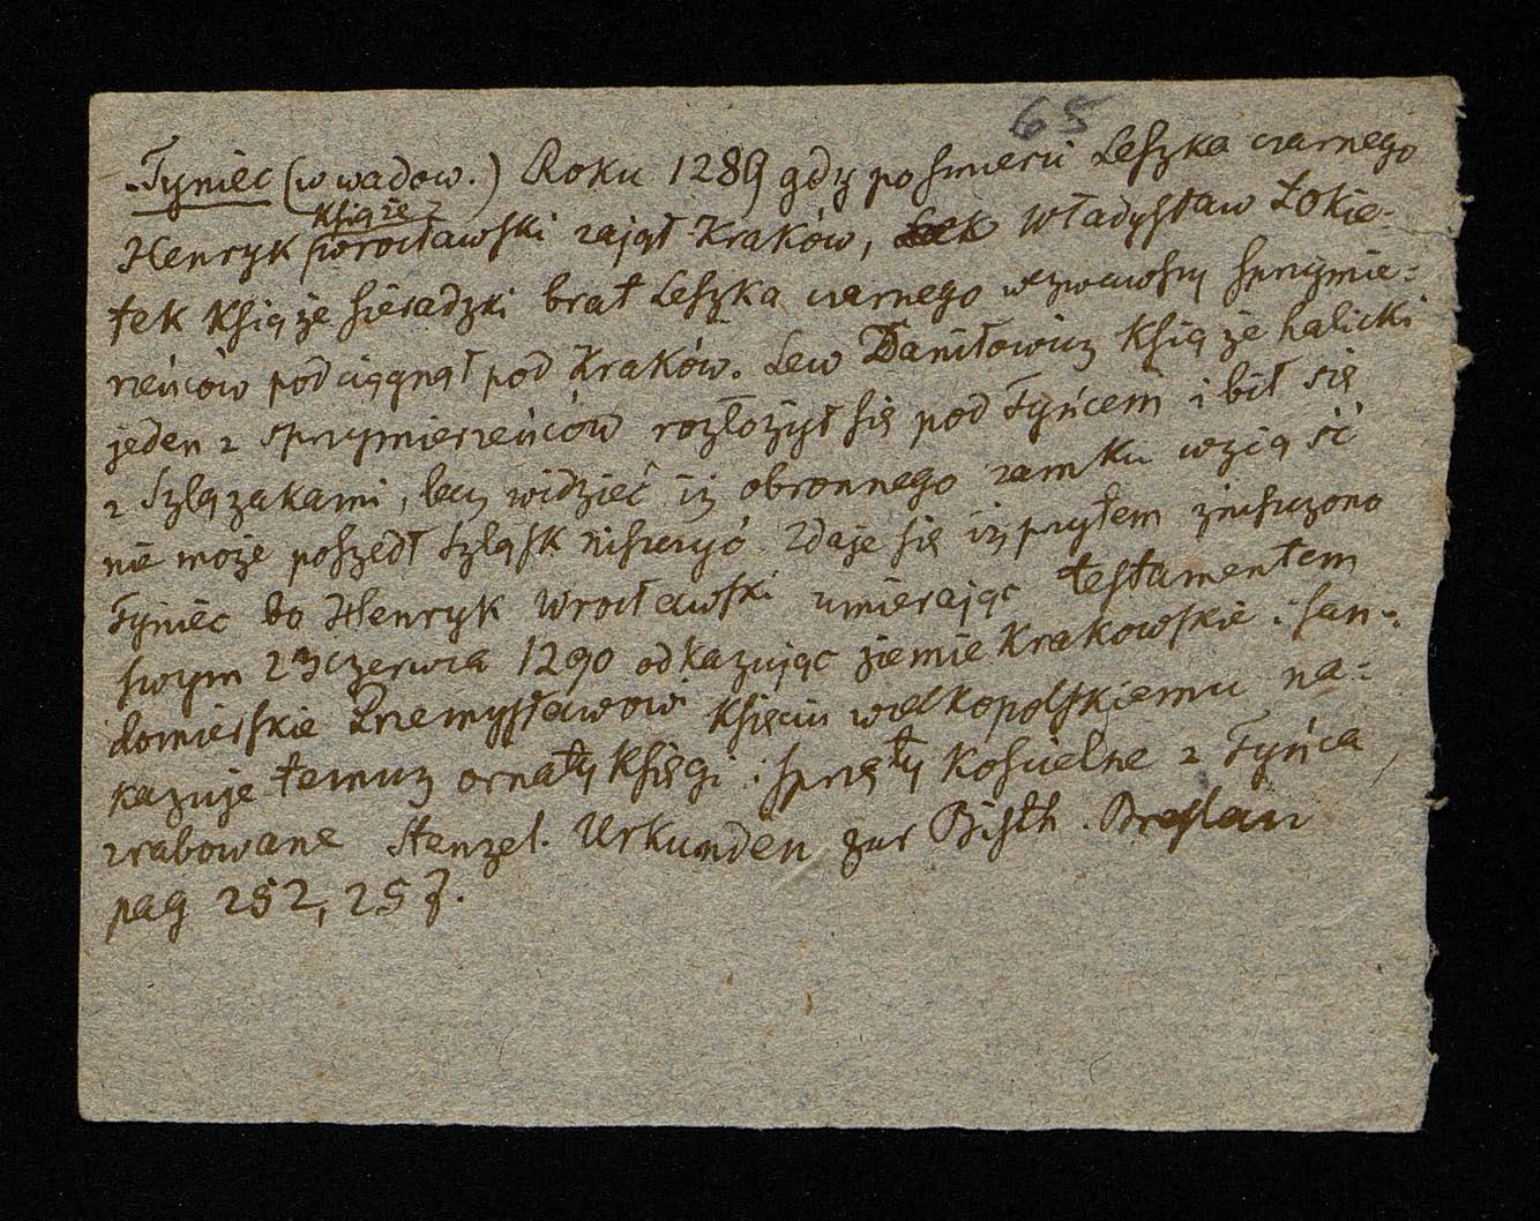 65
Tyniec (w wadow.) Roku 1289 gdy po smierci Leszka czarnego
Książe
Henryk wrocławski zajął Kraków, Władysław Łokie-
tek Książe sieradzki brat Leszka czarnego wezwawszy sprzymie-
rzeńców podciągnął pod Kraków. Lew Daniłowicz Książe halicki
jeden z sprzymierzeńców rozłożył się pod Tyńcem i bił się
z Szlązakami, lecz widzieć iż obronnego zamku wziąść
nie może poszedł Szląsk niszczyć. Zdaje się iż przytem zniszczono
Tyniec bo Henryk Wrocławski umierając testamentem
swym 23 czerwca 1290 odkazując ziemie Krakowskie i San-
domierskie Przemysławowi Księciu wielkopolskiemu na-
kazuje temuż ornaty Księgi i sprzęty Kościelne z Tyńca
zrabowane Stenzel. Urkunden zur Bisth. Breslau
pag 252, 257.